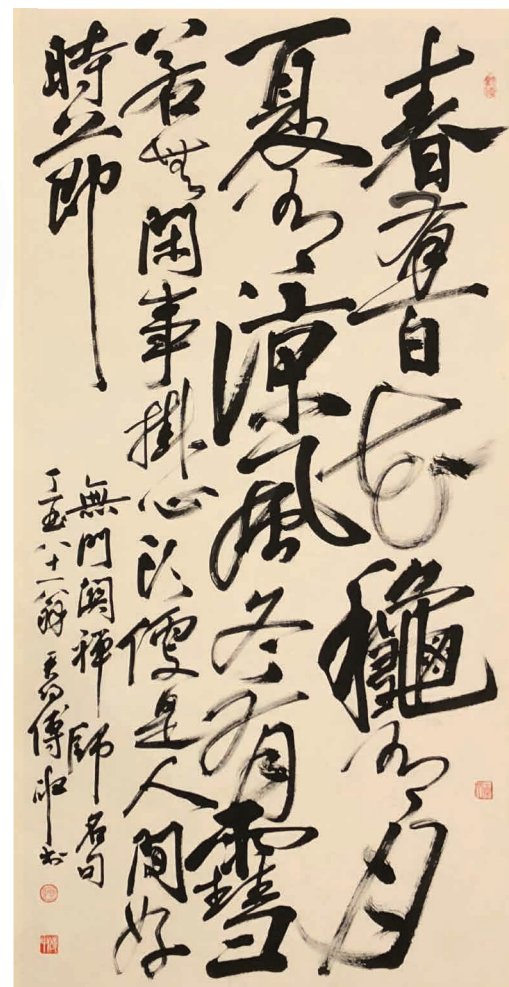 春有百花龝有月
夏有涼風冬有䨮
若無閑事掛心頭便是人間好
時節
無門關禪師名句
丁酉八十一翁君約傅申書